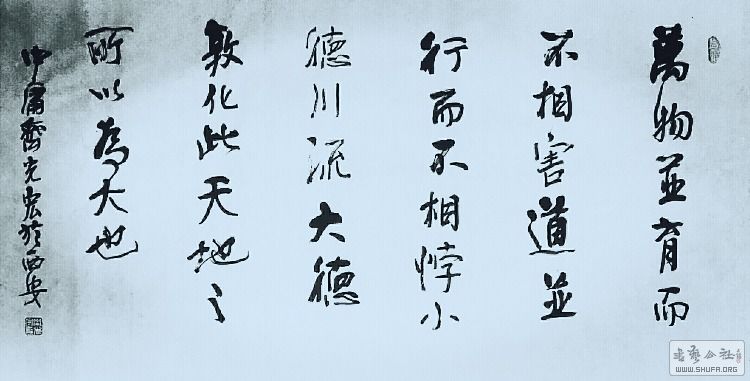 萬物並育而
不相害道並
行而不相悖小
德川流大德
敦化此天地之
所以為大也
中庸齊光宏於西安
WWW.SHUFA.ORG